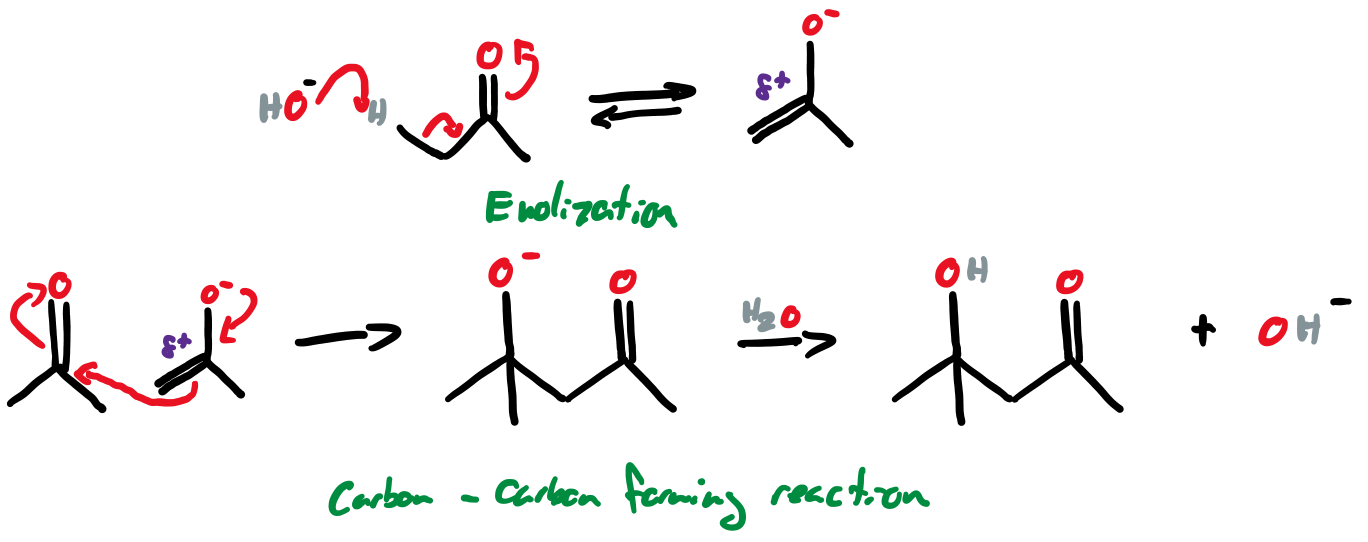 O O⁻
HO⁻ H δ+
Enolization
O O⁻ O⁻ O OH O
δ+ H₂O + OH⁻
Carbon - Carbon forming reaction